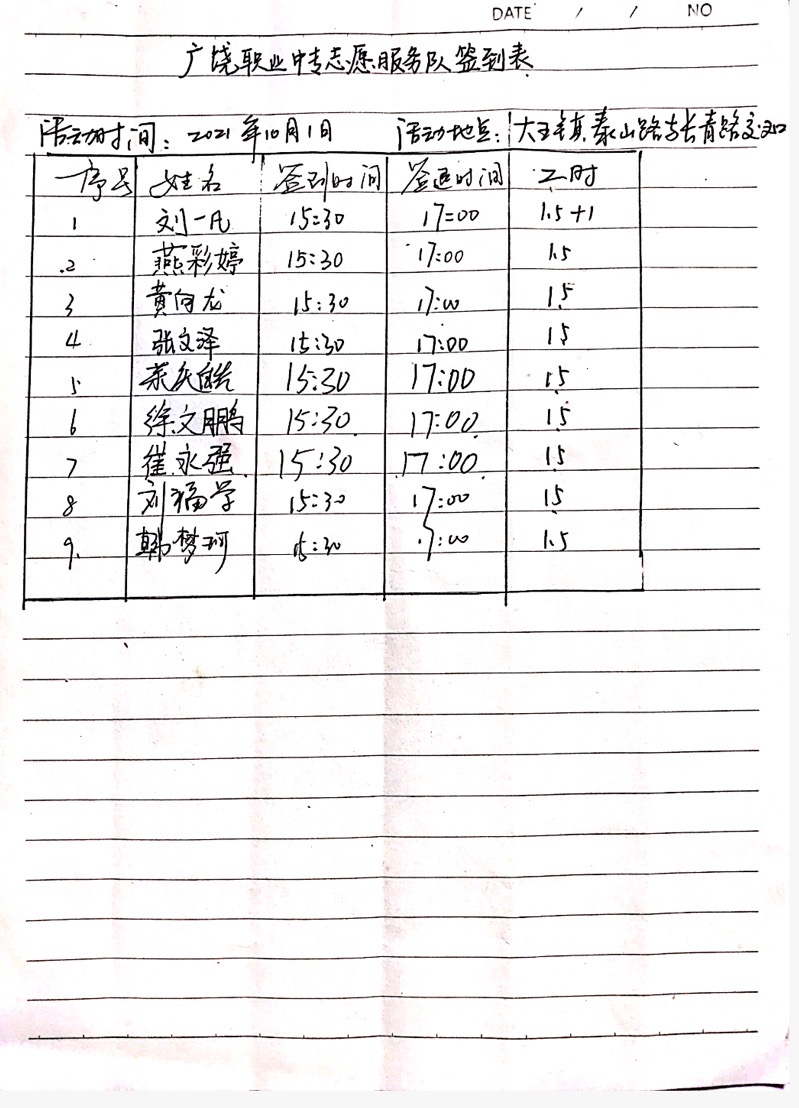 DATE / / NO
广饶职业中专志愿服务队签到表
活动时间：2021年10月1日 活动地点：大王镇泰山路与长青路交叉口
序号 姓名 签到时间 签退时间 工时
1 刘一凡 15:30 17:00 1.5+1
2 燕彩婷 15:30 17:00 1.5
3 黄向龙 15:30 17:00 1.5
4 张文泽 15:30 17:00 1.5
5 15:30 17:00 1.5
6 徐文鹏 15:30 17:00 1.5
7 崔永强 15:30 17:00 1.5
8 刘福学 15:30 17:00 1.5
9. 韩梦珂 15:30 17:00 1.5